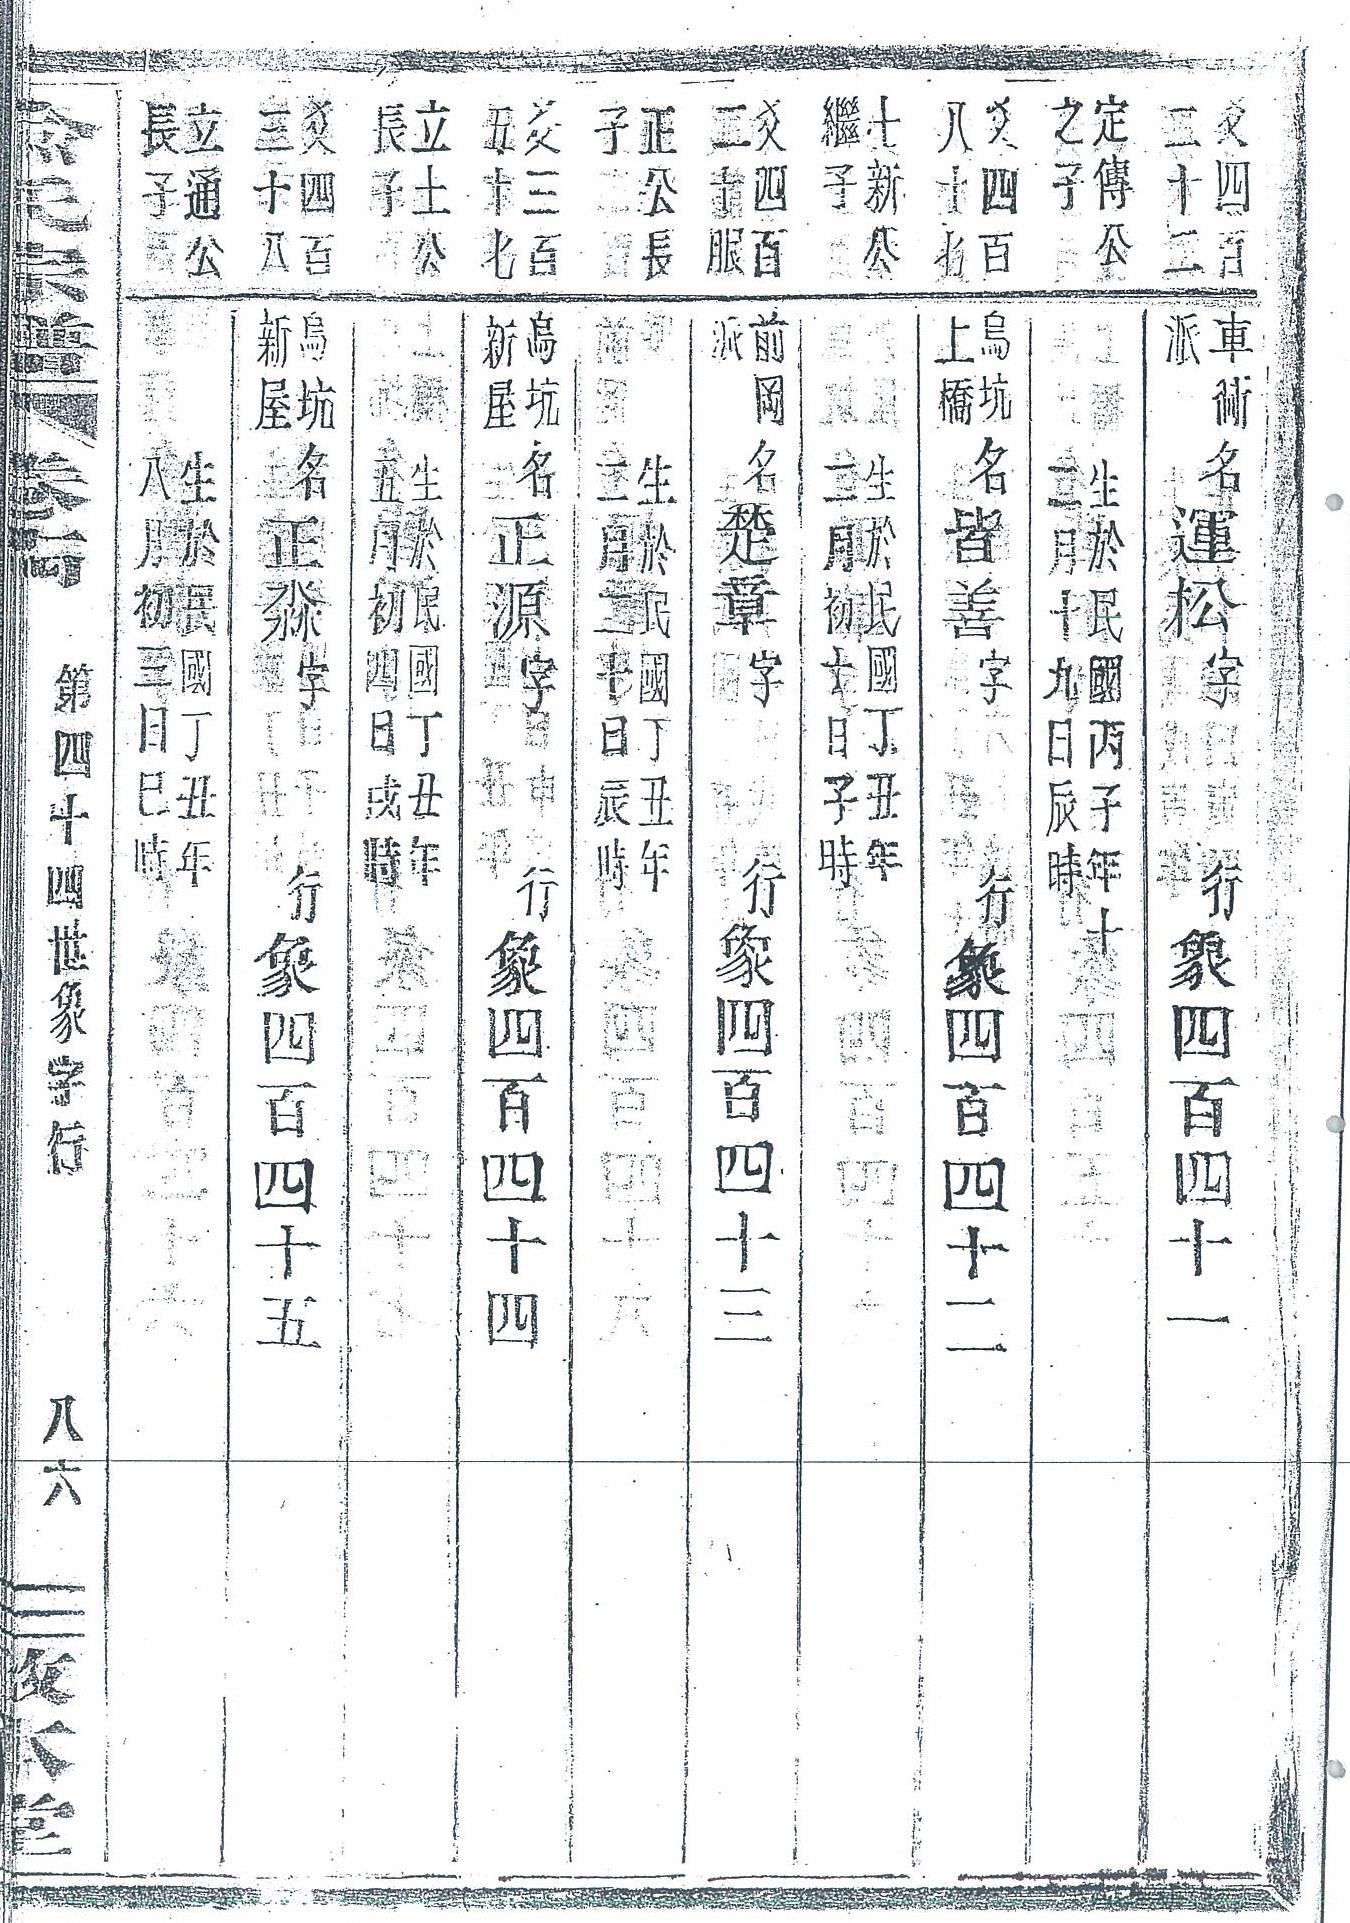 爻四百
二十二
車衕
派
名運松字
行象四百四十一
定傳公
之子
生於民國丙子年十
二月十九日辰時
爻四百
八十七
烏坑
上橋
名皆善字
行象四百四十二
士新公
繼子
生於民國丁丑年
二月初七日子時
爻四百
二十服
前岡
派
名楚章字
行象四百四十三
正公長
子
生於民國丁丑年
二月二十日辰時
爻三百
五十七
烏坑
新屋
名正源字
行象四百四十四
立土公
長子
生於民國丁丑年
五月初四日戌時
爻四百
三十八
烏坑
新屋
名正淼字
行象四百四十五
立通公
長子
生於民國丁丑年
八月初三日巳時
氏宗譜
卷
第四十四世象字行
八六
敦本堂